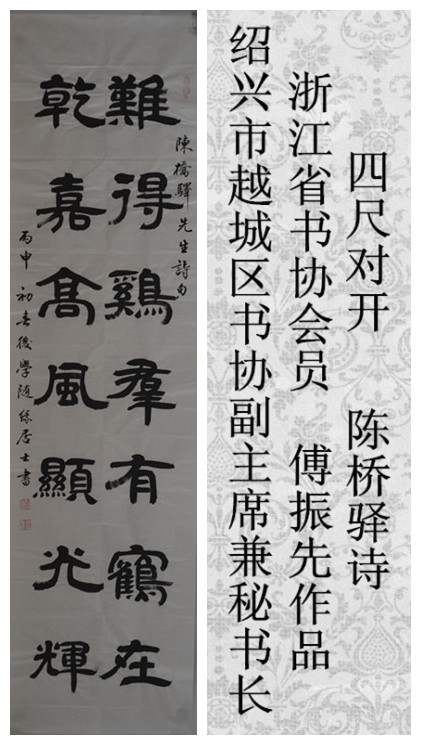 陳橋驛先生詩句
難得鷄羣有鶴在
乾嘉髙風顯光輝
丙申初春後學随緣居士書
四尺对开 陈桥驿诗
浙江省书协会员 傅振先作品
绍兴市越城区书协副主席兼秘书长